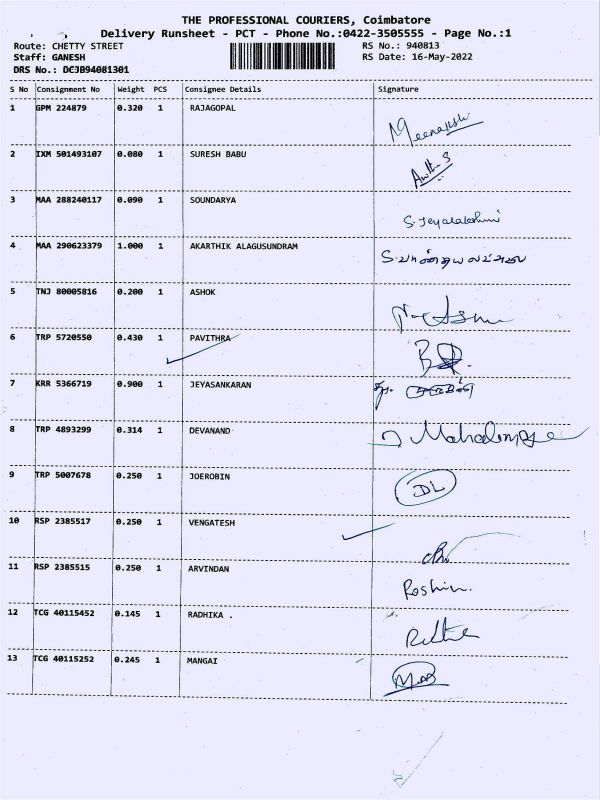 THE PROFESSIONAL COURIERS, Coimbatore
Delivery Runsheet - PCT - Phone No.:0422-3505555 - Page No.:1
Route: CHETTY STREET RS No.: 940813
Staff: GANESH RS Date: 16-May-2022
DRS No.: DCJB94081301
S No Consignment No Weight PCS Consignee Details Signature
1 GPM 224879 0.320 1 RAJAGOPAL
Meenakshi
2 IXM 501493107 0.080 1 SURESH BABU
3 MAA 288240117 0.090 1 SOUNDARYA
S. Jeyalakshmi
4 MAA 290623379 1.000 1 AKARTHIK ALAGUSUNDRAM
5 TNJ 80005816 0.200 1 ASHOK
6 TRP 5720550 0.430 1 PAVITHRA
7 KRR 5366719 0.900 1 JEYASANKARAN
8 TRP 4893299 0.314 1 DEVANAND
9 TRP 5007678 0.250 1 JOEROBIN
DL
10 RSP 2385517 0.250 1 VENGATESH
11 RSP 2385515 0.250 1 ARVINDAN
Roshin.
12 TCG 40115452 0.145 1 RADHIKA .
13 TCG 40115252 0.245 1 MANGAI